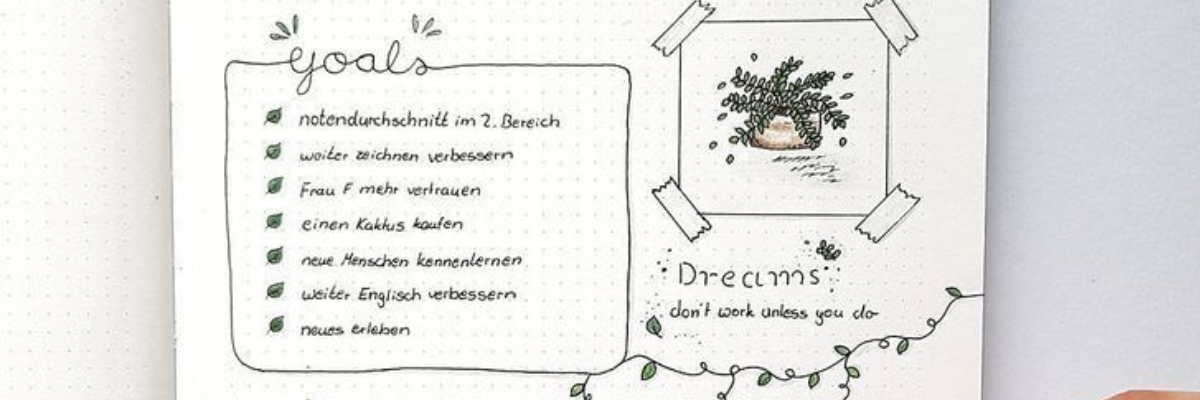 goals
notendurchschnitt im 2. Bereich
weiter zeichnen verbessern
Frau F mehr vertrauen
einen Kaktus kaufen
neue Menschen kennenlernen
weiter Englisch verbessern
neues erleben
Dreams
don't work unless you do